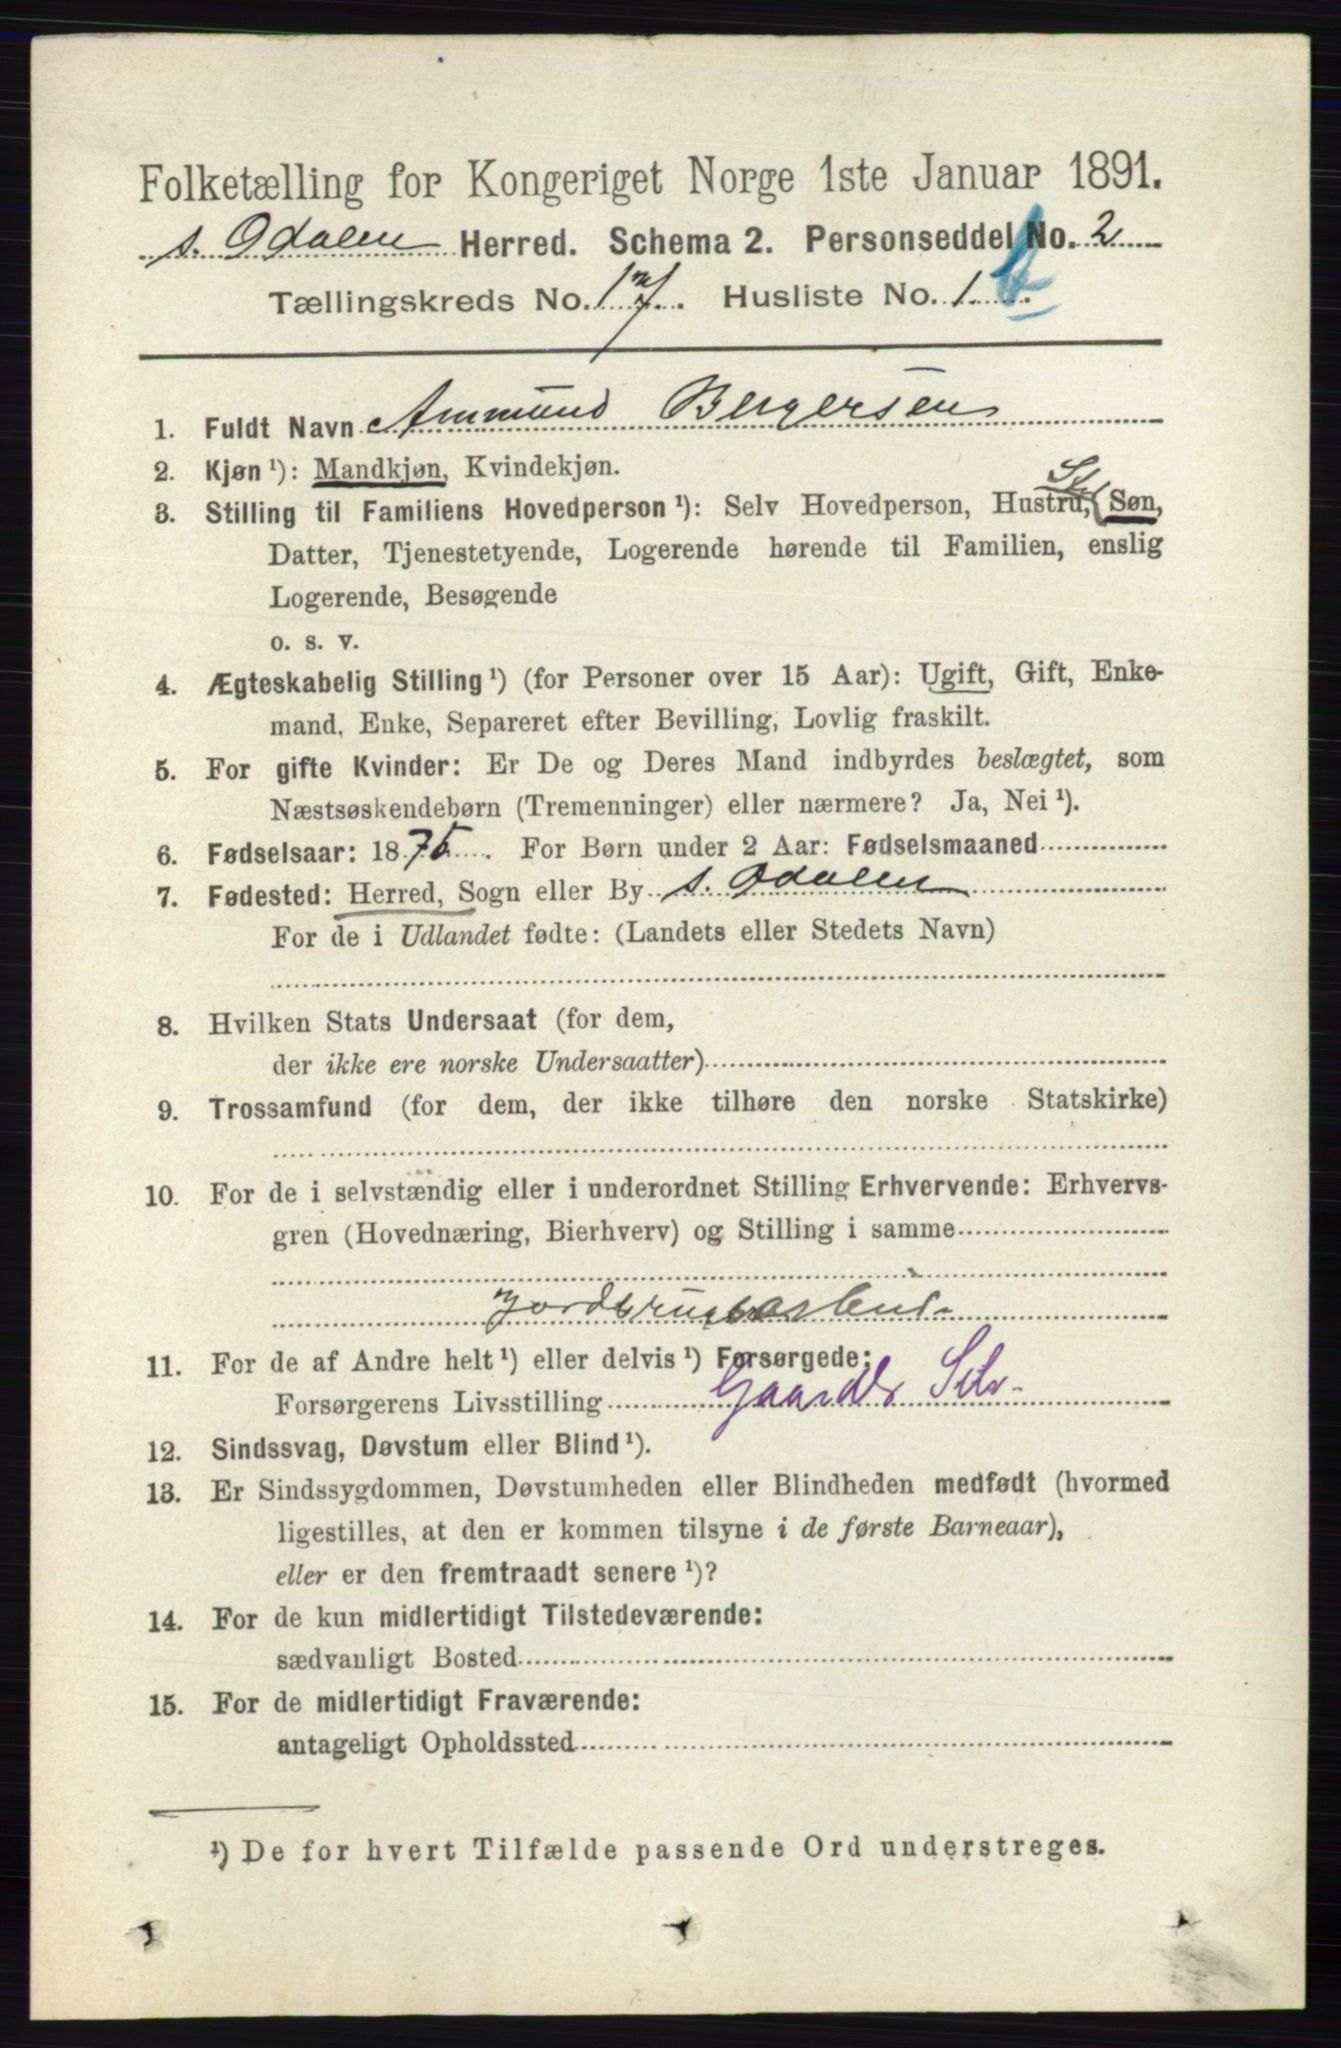 Folketælling for Kongeriget Norge 1ste Januar 1891.
s. Odalen Herred. Schema 2. Personseddel No. 2
Tællingskreds No. 17. Husliste No. 1
1. Fuldt Navn Ammund Bergersen
2. Kjøn ¹): Mandkjøn, Kvindekjøn.
St
3. Stilling til Familiens Hovedperson ¹): Selv Hovedperson, Hustru, (Søn,
Datter, Tjenestetyende, Logerende hørende til Familien, enslig
Logerende, Besøgende
o. s. v.
4. Ægteskabelig Stilling ¹) (for Personer over 15 Aar): Ugift, Gift, Enke-
mand, Enke, Separeret efter Bevilling, Lovlig fraskilt.
5. For gifte Kvinder: Er De og Deres Mand indbyrdes beslægtet, som
Næstsøskendebørn (Tremenninger) eller nærmere? Ja, Nei ¹).
6. Fødselsaar: 1875. For Børn under 2 Aar: Fødselsmaaned
7. Fødested: Herred, Sogn eller By s. Odalen
For de i Udlandet fødte: (Landets eller Stedets Navn)
8. Hvilken Stats Undersaat (for dem,
der ikke ere norske Undersaatter)
9. Trossamfund (for dem, der ikke tilhøre den norske Statskirke)
10. For de i selvstændig eller i underordnet Stilling Erhvervende: Erhvervs-
gren (Hovednæring, Bierhverv) og Stilling i samme
Jordbrugsarbeid-
11. For de af Andre helt ¹) eller delvis ¹) Forsørgede:
Forsørgerens Livsstilling Gaardbr Selv-
12. Sindssvag, Døvstum eller Blind ¹).
13. Er Sindssygdommen, Døvstumheden eller Blindheden medfødt (hvormed
ligestilles, at den er kommen tilsyne i de første Barneaar),
eller er den fremtraadt senere ¹)?
14. For de kun midlertidigt Tilstedeværende:
sædvanligt Bosted
15. For de midlertidigt Fraværende:
antageligt Opholdssted
¹) De for hvert Tilfælde passende Ord understreges.